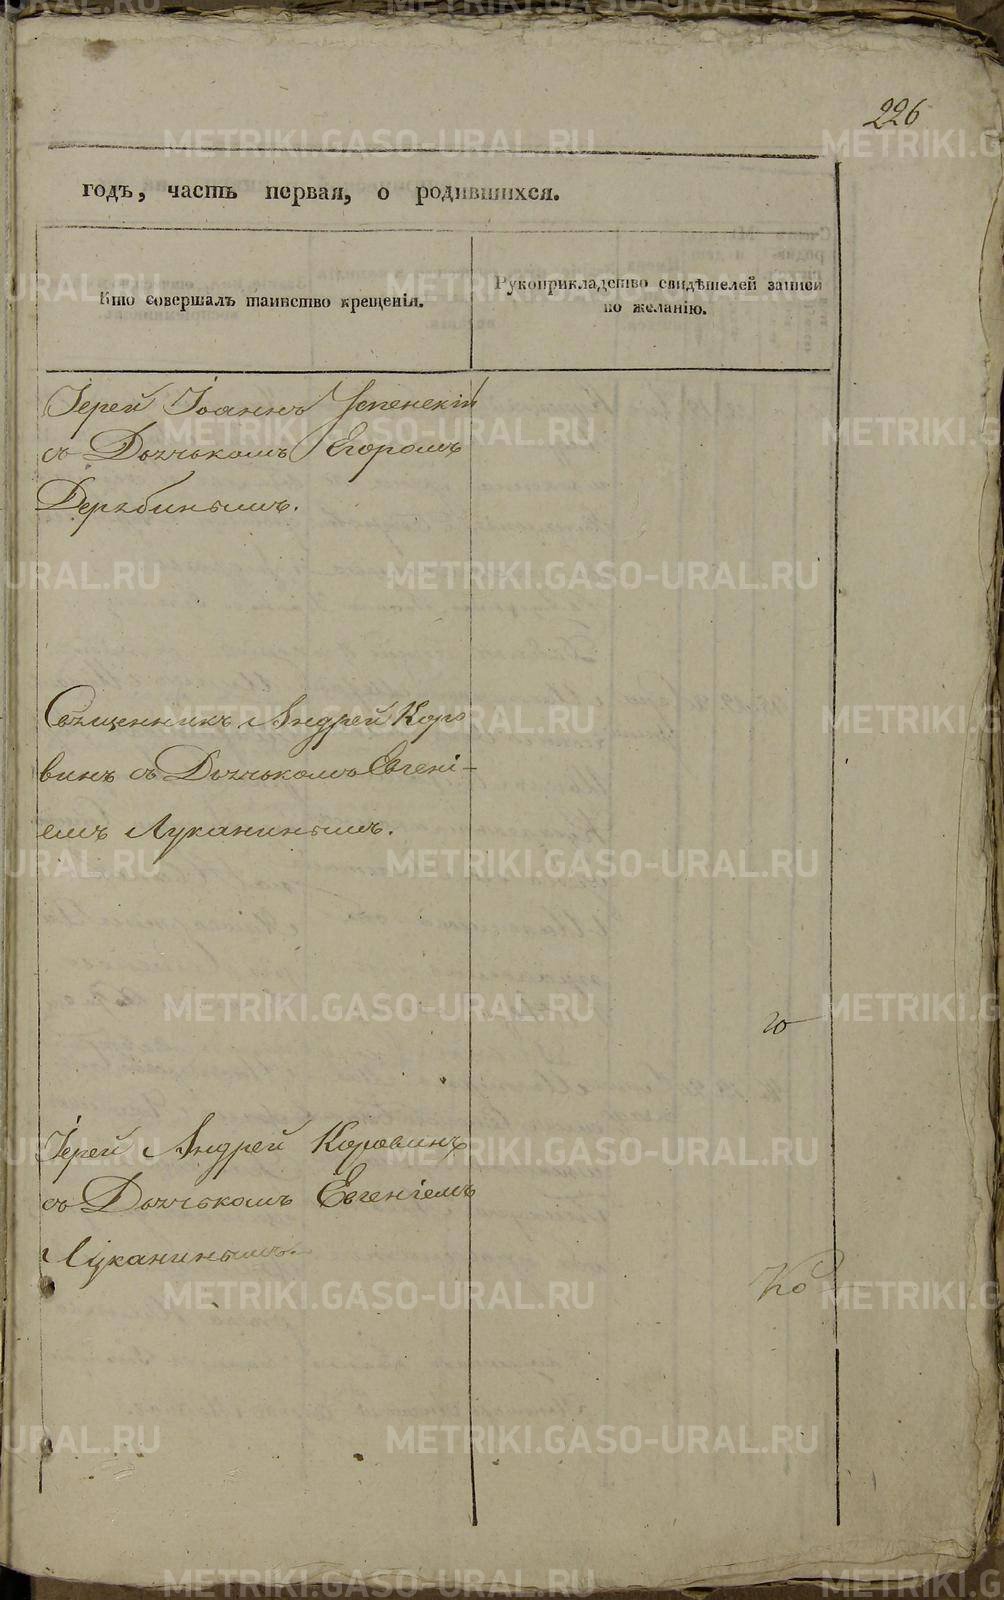 226
годъ, часть первая, о родившихся.
Кто совершалъ таинство крещенія.
Рукоприкладство свидѣтелей записи
по желанію.
Іерей Іоаннъ Успенскій
съ Дьячькомъ Егоромъ
Дерябинымъ.
Священникъ Андрей Коро
винъ съ Дьячькомъ Евгені-
емъ Луканинымъ.
Іерей Андрей Коровинъ
съ Дьячькомъ Евгеніемъ
Луканинымъ.
Ко
METRIKI.GASO-URAL.RU